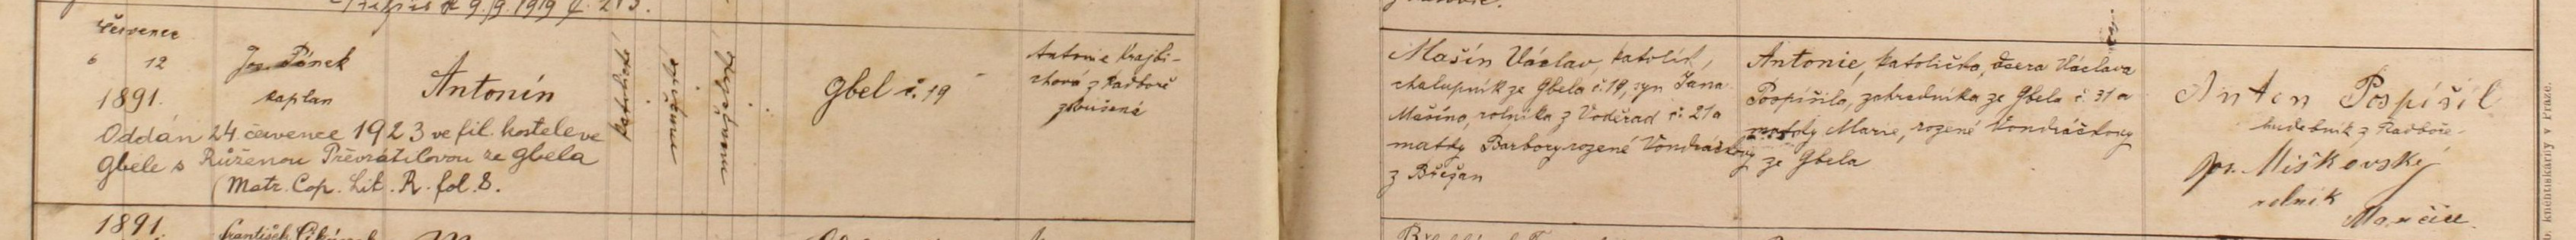 Přípis z 9./9. 1919 č. 213.
červenec
6 12
1891.
Jos. Pánek
kaplan
Antonín
katolické
mužské
manželské
Gbel č. 19
Antonie Krajbi-
chová z Radboře
zkoušená
Oddán 24. července 1923 ve fil. kostele ve
Gbele s Růženou Převrátilovou ze Gbela
(Matr. Cop. Lit. R. fol. 8.
1891.
František
Mašín Václav, katolík,
chalupník ze Gbela č. 19, syn Jana
Mašína, rolníka z Voděrad č. 21 a
matky Barbory rozené Vondráčkovy
z Břežan
Antonie, katolička, dcera Václava
Pospíšila, zahradníka ze Gbela č. 31 a
matky Marie, rozené Vondráčkovy
ze Gbela
Anton Pospíšil
hudebník z Radboře
Jos. Miškovský
rolník
knihtiskárny v Praze.